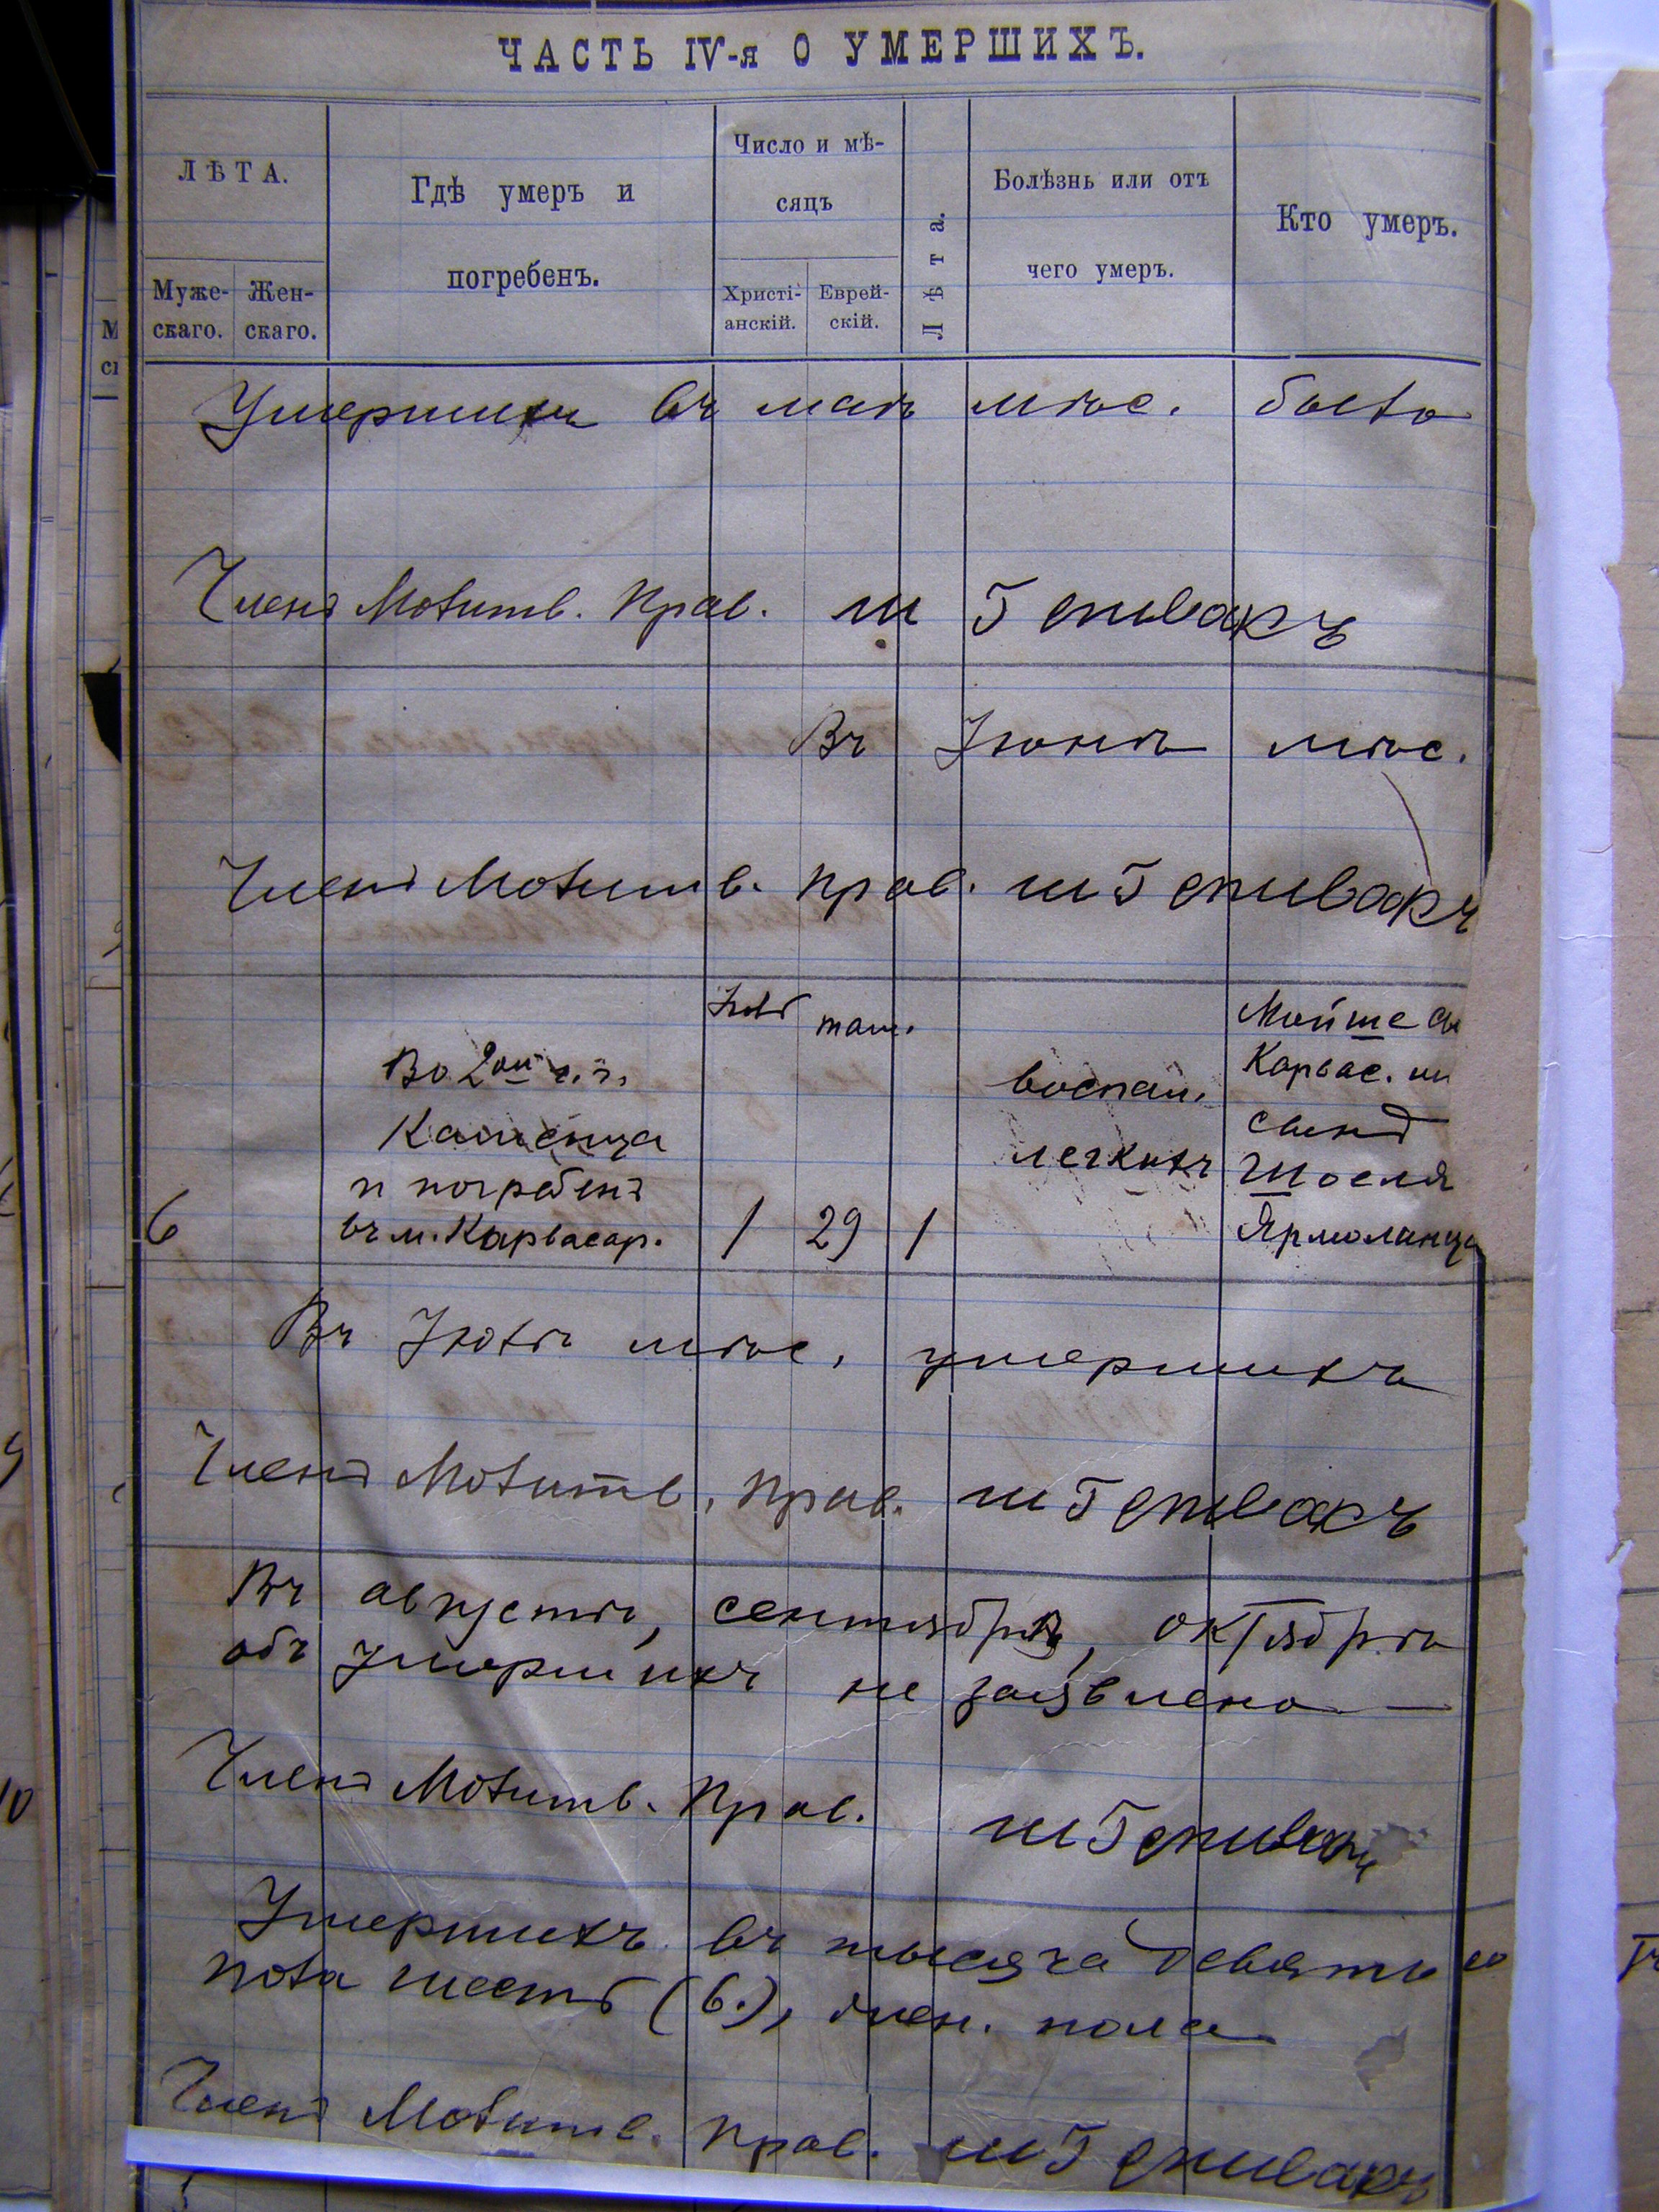 ЧАСТЬ IV-я О УМЕРШИХЪ.
ЛѢТА.
Муже-
скаго.
Жен-
скаго.
Гдѣ умеръ и
погребенъ.
Число и мѣ-
сяцъ
Христі-
анскій.
Еврей-
скій.
Лѣта.
Болѣзнь или отъ
чего умеръ.
Кто умеръ.
Умершихъ въ маѣ мѣс. было
Членъ Молитв. Прав.
Въ Іюнѣ мѣс.
Членъ Молитв. Прав.
6
Во 2ой ч. г.
Каменца
и погребенъ
въ м. Карвасар.
1
там.
29
1
воспал.
легкихъ
Мойше
Карвас.
сынъ
Шоеля
Ярмолинца
Въ Іюлѣ мѣс. умершихъ
Членъ Молитв. Прав.
Въ августѣ, сентябрѣ, октябрѣ
объ умершихъ не заявлено —
Членъ Молитв. Прав.
Умершихъ въ тысяча девять
пола шесть (6.), жен. пола
Членъ Молитв. Прав.